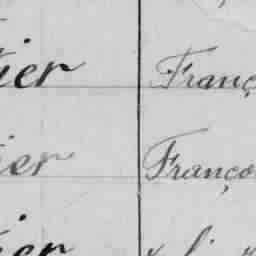 ier Franç
ier Franço
ier